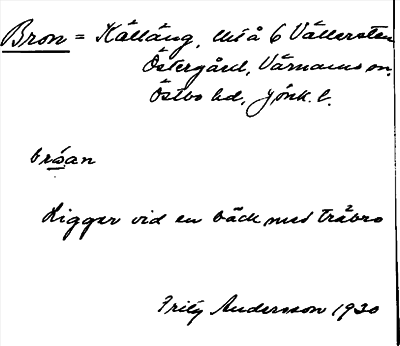 Bron = Källäng, till å 6 Vällersten
Östergård, Värnamo sn.
Östbo hd, Jönk. l.
bròan
Ligger vid en bäck med träbro
Fritz Andersson 1930